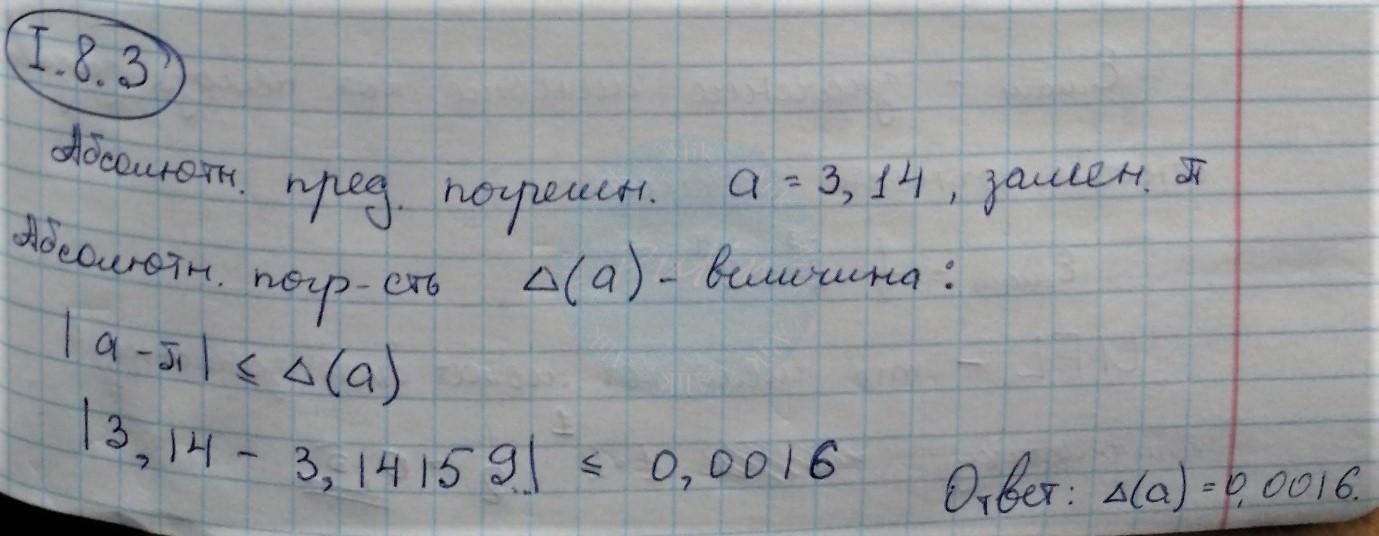 I.8.3
Абсолютн. пред. погрешн. a = 3,14, замен. π
Абсолютн. погр-сть Δ(a) - величина:
|a - π| ≤ Δ(a)
|3,14 - 3,14159..| ≤ 0,0016
Ответ: Δ(a) = 0,0016.